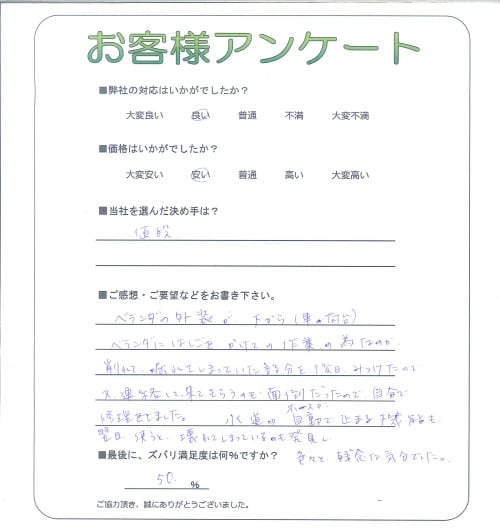 お客様アンケート
■弊社の対応はいかがでしたか？
大変良い　良い　普通　不満　大変不満
■価格はいかがでしたか？
大変安い　安い　普通　高い　大変高い
■当社を選んだ決め手は？
値段
■ご感想・ご要望などをお書き下さい。
ベランダの外装が 下から(車の荷台)
ベランダにはしごをかけての作業の為なのか
削れて、破れてしまっていた部分を後日、みつけたので、
又、連絡して来てもらうのも面倒だったので、自分で
修理をしました。 水道の ホースが 自動で止まる機能も、
翌日、使うと、壊れてしまっているのも発見し、
色々と、残念な気分でした。
■最後に、ズバリ満足度は何％ですか？
50. ％
ご協力頂き、誠にありがとうございました。